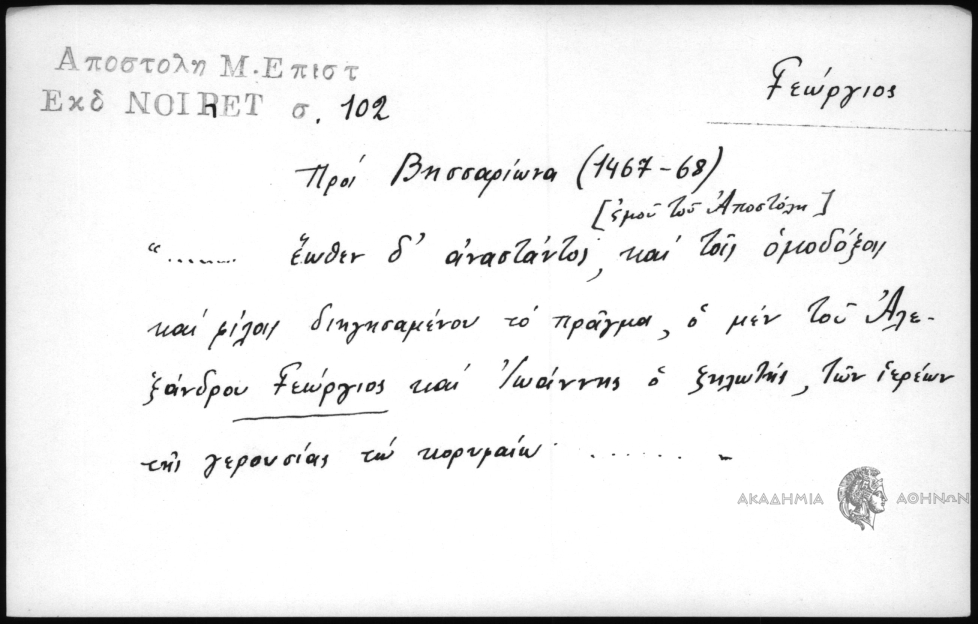 Αποστολη Μ. Επιστ
Εκδ NOIRET σ. 102
Γεώργιος
Πρός Βησσαρίωνα (1467-68)
[ἐμοῦ τοῦ Ἀποστόλη]
"....... ἕωθεν δ' ἀναστάντος, καί τοῖς ὁμοδόξοις
καί φίλοις διηγησαμένου τό πρᾶγμα, ὁ μέν τοῦ Ἀλε-
ξάνδρου Γεώργιος καί Ἰωάννης ὁ ζηλωτής, τῶν ἱερέων
τῆς γερουσίας τώ κορυφαίω ....... "
ΑΚΑΔΗΜΙΑ ΑΘΗΝΩΝ